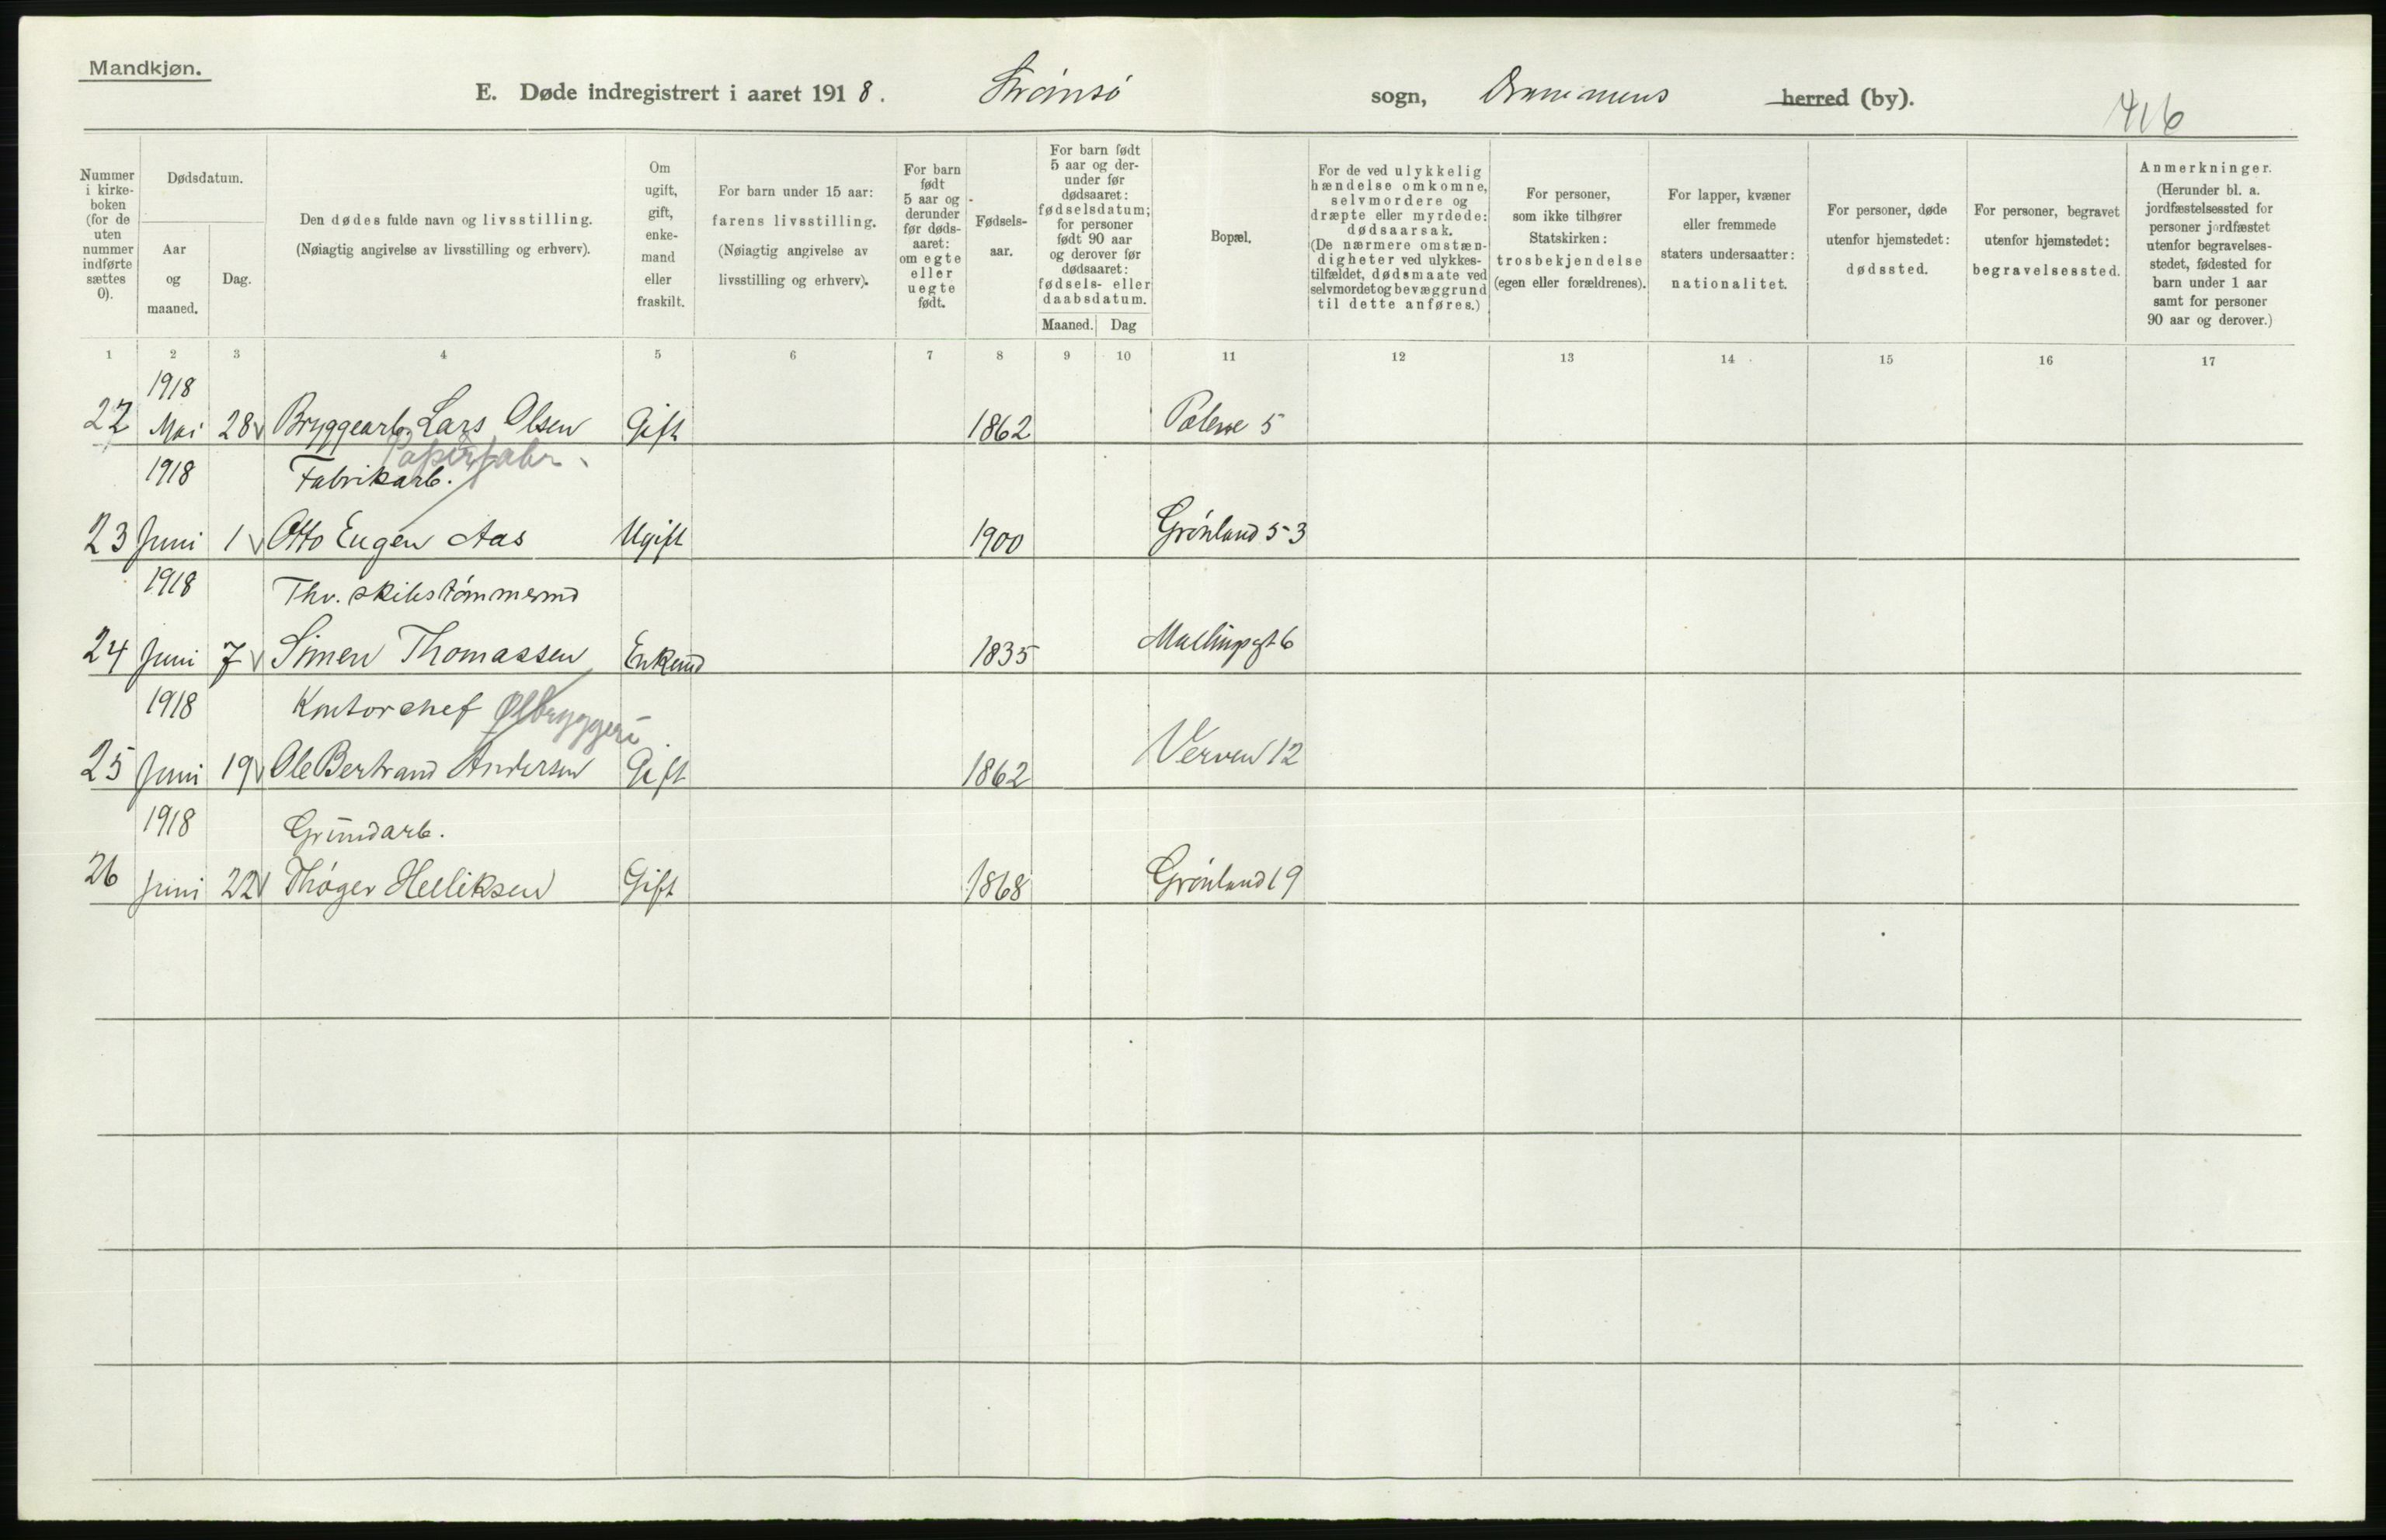 Mandkjøn.
E. Døde indregistrert i aaret 1918. Strömsö sogn, Drammens herred (by).
416
Nummer i kirke- boken (for de uten nummer indførte sættes 0).
Dødsdatum.
Aar og maaned.
Dag.
Den dødes fulde navn og livsstilling.
(Nøiagtig angivelse av livsstilling og erhverv).
Om ugift, gift, enke- mand eller fraskilt.
For barn under 15 aar:
farens livsstilling.
(Nøiagtig angivelse av livsstilling og erhverv).
For barn født 5 aar og derunder før døds- aaret: om egte eller uegte født.
Fødsels- aar.
For barn født 5 aar og der- under før dødsaaret: fødselsdatum; for personer født 90 aar og derover før dødsaaret: fødsels- eller daabsdatum.
Maaned. Dag
Bopæl.
For de ved ulykkelig hændelse omkomne, selvmordere og dræpte eller myrdede: dødsaarsak. (De nærmere omstæn- digheter ved ulykkes- tilfældet, dødsmaate ved selvmordet og bevæggrund til dette anføres.)
For personer, som ikke tilhører Statskirken: trosbekjendelse (egen eller forældrenes).
For lapper, kvæner eller fremmede staters undersaatter: nationalitet.
For personer, døde utenfor hjemstedet: dødssted.
For personer, begravet utenfor hjemstedet: begravelsessted.
Anmerkninger. (Herunder bl. a. jordfæstelsessted for personer jordfæstet utenfor begravelses- stedet, fødested for barn under 1 aar samt for personer 90 aar og derover.)
1 2 3 4 5 6 7 8 9 10 11 12 13 14 15 16 17
1918
22 Mai 28 Bryggearb. Lars Olsen Gift 1862 5
Papirfabr.
1918 Fabrikarb.
23 Juni 1 Otto Eugen Aas Ugift 1900 Grönland 53
1918 Thv. skibstömmermd
24 Juni 7 Simen Thomassen Enkemd 1835 Mallingsgt 6
1918 Kontorchef Ølbryggeri
25 Juni 19 Ole Bertrand Andersen Gift 1862 Verven 12
1918 Grundarb.
26 Juni 22 Thöger Helliksen Gift 1868 Grönland 19